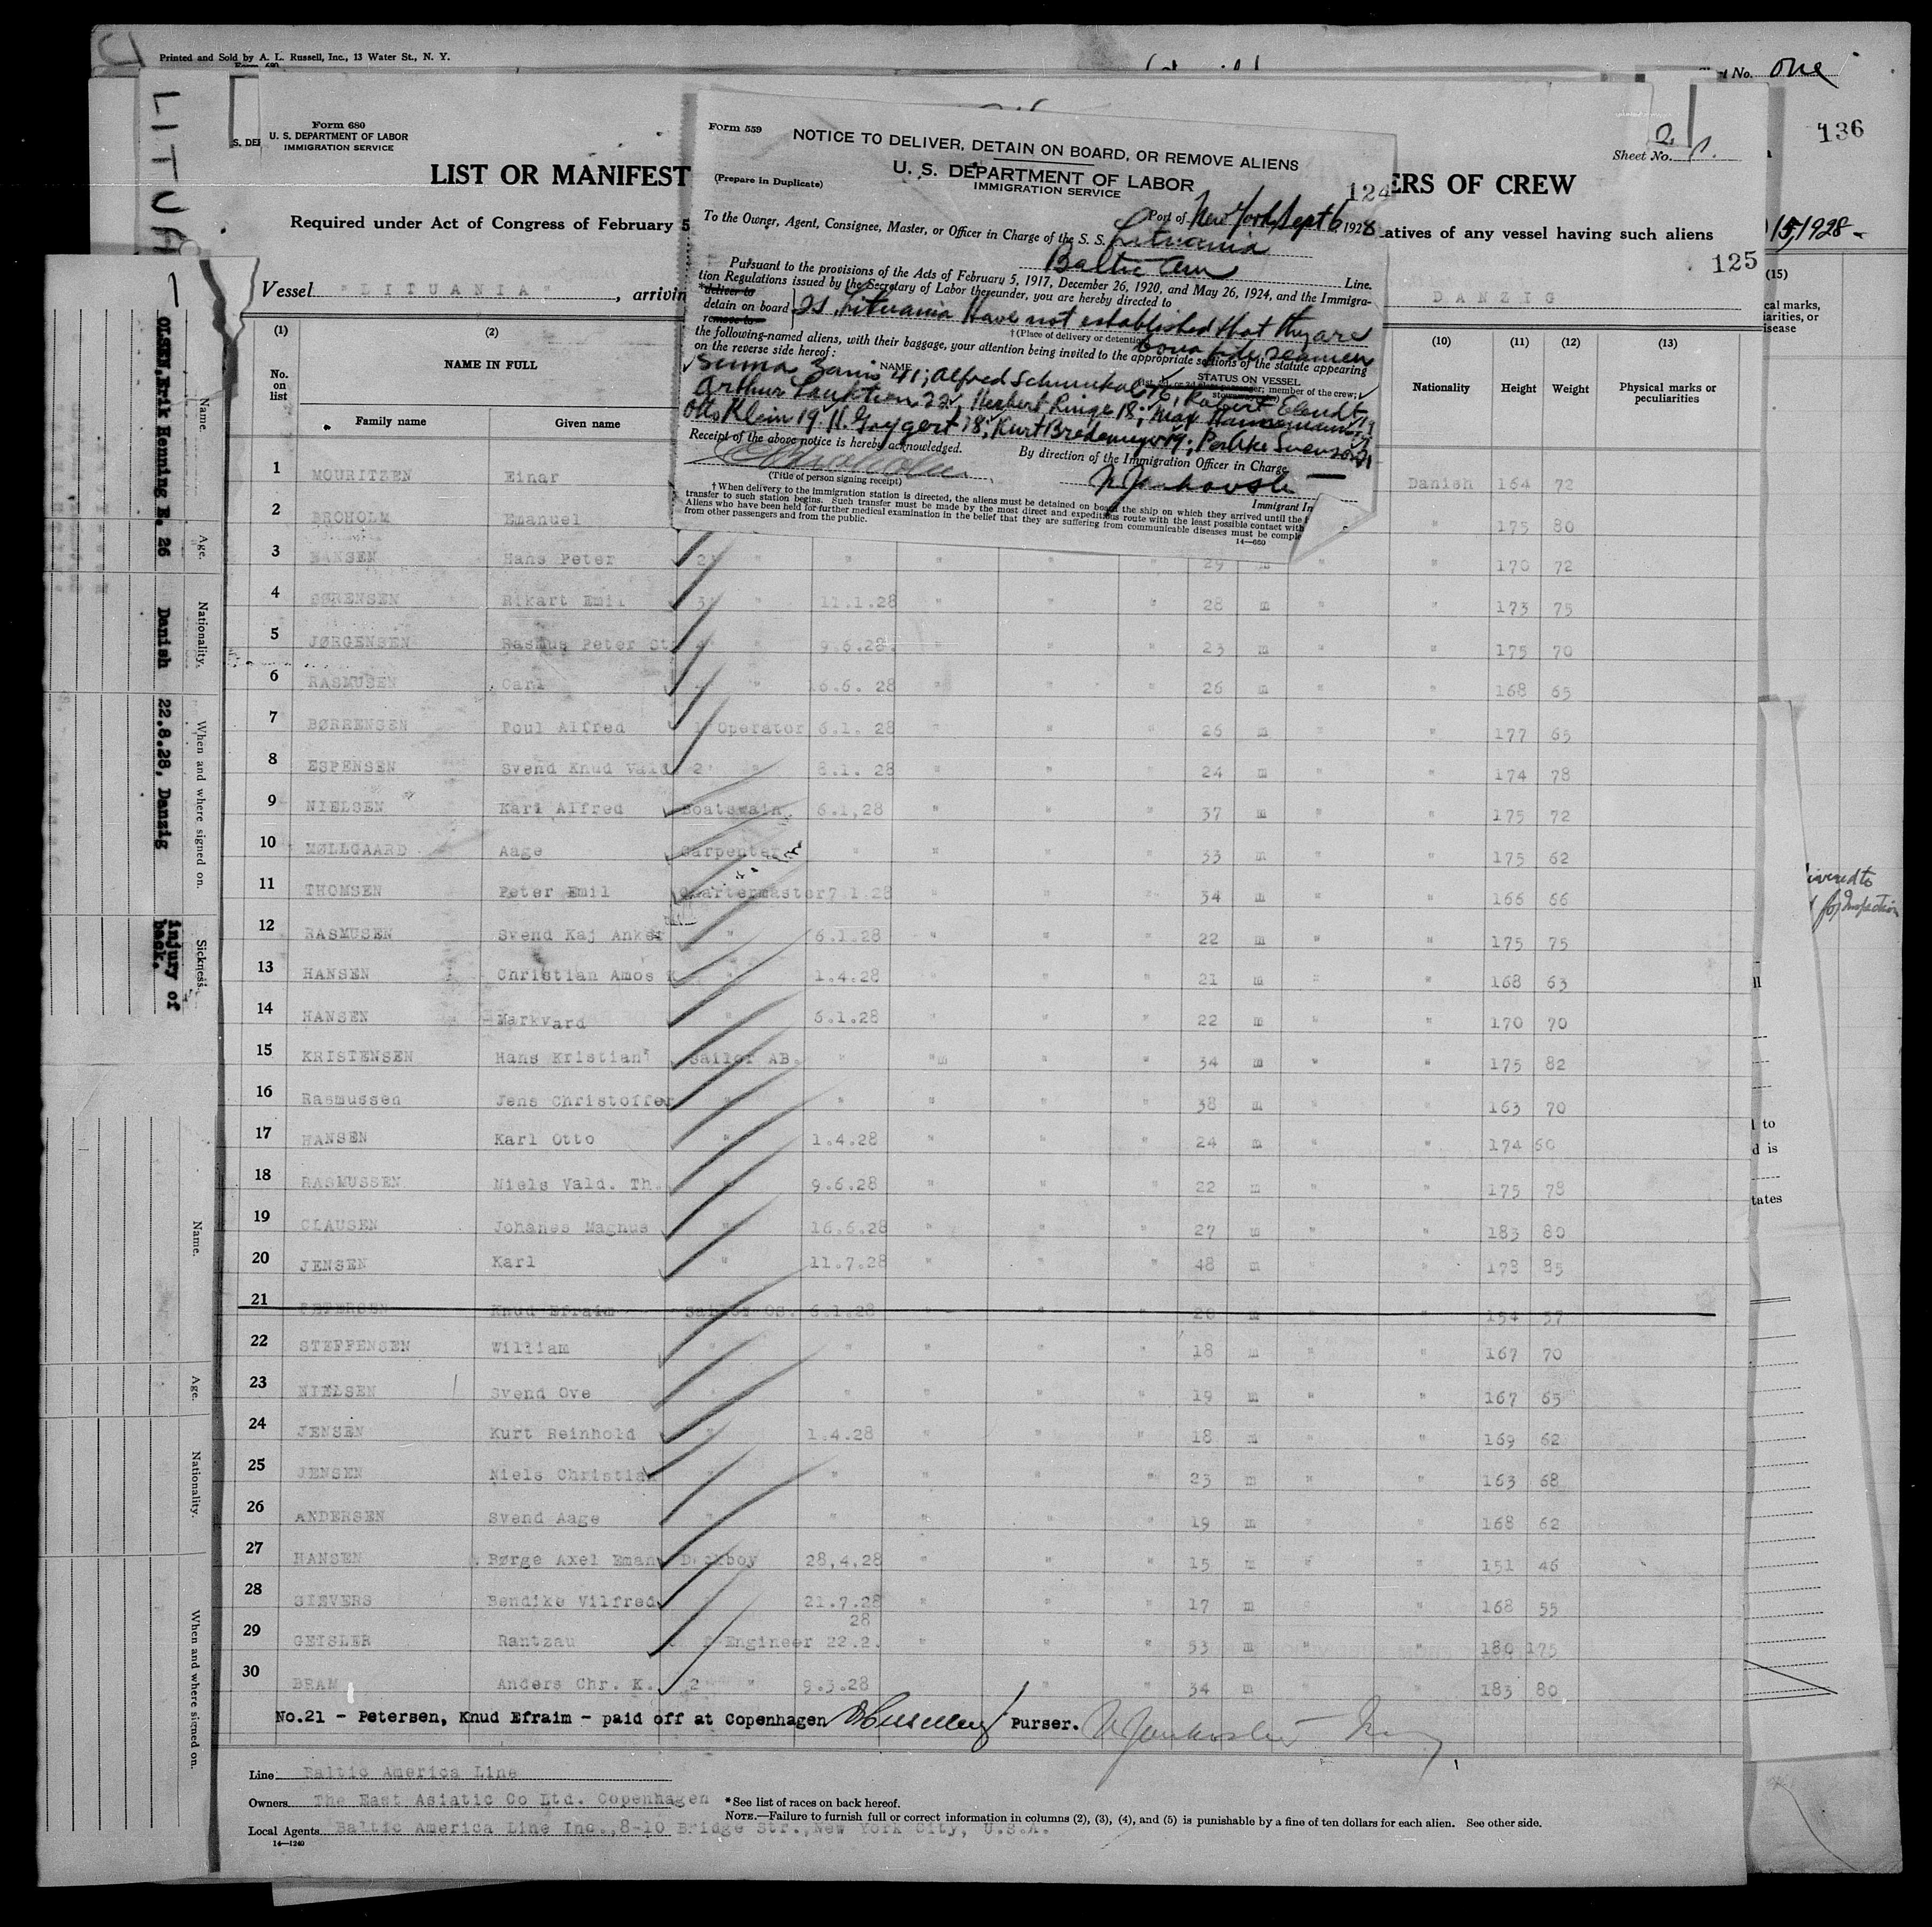 Printed and Sold by A. L. Russell, Inc., 13 Water St., N. Y.
No. one
136
LITUA
Form 680
U. S. DEPARTMENT OF LABOR
IMMIGRATION SERVICE
S. DEP
Sheet No.
LIST OR MANIFEST
ERS OF CREW
Required under Act of Congress of February 5
atives of any vessel having such aliens
15, 1928-
125
Vessel "LITUANIA", arrivin
DANZIG
Form 559
NOTICE TO DELIVER, DETAIN ON BOARD, OR REMOVE ALIENS
U. S. DEPARTMENT OF LABOR
IMMIGRATION SERVICE
(Prepare in Duplicate)
124
Port of New York, Sept 6, 1928
To the Owner, Agent, Consignee, Master, or Officer in Charge of the S. S. Lituania
Baltic Am Line.
Pursuant to the provisions of the Acts of February 5, 1917, December 26, 1920, and May 26, 1924, and the Immigra-
tion Regulations issued by the Secretary of Labor thereunder, you are hereby directed to
deliver to
detain on board
remove to
SS. Lituania Have not established that they are
bona fide seamen
† (Place of delivery or detention)
the following-named aliens, with their baggage, your attention being invited to the appropriate sections of the statute appearing
on the reverse side hereof:
NAME
STATUS ON VESSEL
member of the crew;
41; Alfred Robert Elendt
Arthur 22, Herbert Ringe 18; Max Hannemann
Otto Klein 19. H. 18; Kurt 19; Svenson 21
Receipt of the above notice is hereby acknowledged.
By direction of the Immigration Officer in Charge
(Title of person signing receipt)
Immigrant In
† When delivery to the immigration station is directed, the aliens must be detained on board the ship on which they arrived until the
transfer to such station begins. Such transfer must be made by the most direct and expeditious route with the least possible contact with
Aliens who have been held for further medical examination in the belief that they are suffering from communicable diseases must be comple
from other passengers and from the public.
14—660
(1) (2) (10) (11) (12) (13) (15)
No. on list
NAME IN FULL
Family name Given name
Nationality Height Weight Physical marks or peculiarities
cal marks,
iarities, or
isease
1 MOURITZEN Einar Danish 164 72
2 BROHOLM Emanuel " 175 80
3 HANSEN Hans Peter 2 " " " " " 29 m " " 170 72
4 SØRENSEN Rikart Emil 3 " 11.1.28 " " " 28 m " " 173 75
5 JØRGENSEN Rasmus Peter St " 9.6.28 " " " 23 m " " 175 70
6 RASMUSEN Carl " 16.6. 28 " " " 26 m " " 168 65
7 BØRRENSEN Poul Alfred 1 Operator 6.1. 28 " " " 26 m " " 177 65
8 ESPENSEN Svend Knud Vald 2 " 8.1. 28 " " " 24 m " " 174 78
9 NIELSEN Karl Alfred Boatswain 6.1.28 " " " 37 m " " 175 72
10 MØLLGAARD Aage Carpenter " " " " 33 m " " 175 62
11 THOMSEN Peter Emil Quartermaster 7.1.28 " " " 34 m " " 166 66
12 RASMUSEN Svend Kaj Anker " 6.1.28 " " " 22 m " " 175 75
13 HANSEN Christian Amos K " 1.4.28 " " " 21 m " " 168 63
14 HANSEN Markvard " 6.1.28 " " " 22 m " " 170 70
15 KRISTENSEN Hans Kristian Sailor AB. " "m " " 34 m " " 175 82
16 Rasmussen Jens Christoffer " " " " " 38 m " " 163 70
17 HANSEN Karl Otto " 1.4.28 " " " 24 m " " 174 60
18 RASMUSSEN Niels Vald. Th. " 9.6.28 " " " 22 m " " 175 78
19 CLAUSEN Johanes Magnus " 16.6.28 " " " 27 m " " 183 80
20 JENSEN Karl " 11.7.28 " " " 48 m " " 178 85
21 PETERSEN Knud Efraim Sailor OS. 6.1.28 " " " 20 m " " 154 57
22 STEFFENSEN William " " " " " 18 m " " 167 70
23 NIELSEN Svend Ove " " " " " 19 m " " 167 65
24 JENSEN Kurt Reinhold " 1.4.28 " " " 18 m " " 169 62
25 JENSEN Niels Christian " " " " " 23 m " " 163 68
26 ANDERSEN Svend Aage " " " " " 19 m " " 168 62
27 HANSEN Børge Axel Eman Deckboy 28,4,28 " " " 15 m " " 151 46
28 SIEVERS Bendike Vilfred 21.7.28 " " " 17 m " " 168 55
29 GEISLER Rantzau Engineer 22.2. 28 " " " 53 m " " 180 175
30 BRAM Anders Chr. K. 2 " 9.3.28 " " 34 m " " 183 80
No.21 - Petersen, Knud Efraim - paid off at Copenhagen Purser.
Line Baltic America Line
Owners The East Asiatic Co Ltd. Copenhagen
Local Agents Baltic America Line Inc.,8-10 Bridge Str.,New York City, U.S.A.
14—1240
*See list of races on back hereof.
NOTE.—Failure to furnish full or correct information in columns (2), (3), (4), and (5) is punishable by a fine of ten dollars for each alien. See other side.
Name. Age. Nationality. When and where signed on. Sickness.
OLSEN,Erik Henning E. 26 Danish 22.8.28, Danzig injury of back.
Name. Age. Nationality. When and where signed on.
ivered to
for Inspection
to
d is
tates